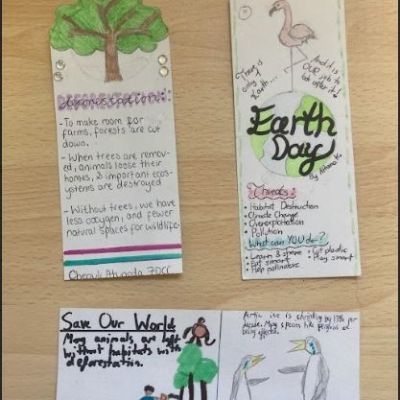 DEFORESTATION:
- To make room for
farms, forests are cut
down.
- When trees are remov-
ed, animals loose their
homes, & important ecos-
ystems are destroyed
- Without trees, we have
less oxygen, and fewer
natural spaces for wildlife.
7DCr
There is
only 1
Earth...
And it is
OUR job to
look after it!
Earth
Day
By
Threats:
• Habitat Destruction
• Climate Change
• Overexploitation
• Pollution
What can YOU do?
• Learn & share • Cut plastic
• Eat smart • Play smart
• Help pollinators
Save Our World
Many animals are left
without habitats with
deforestation.
Artic ice is shrinking by 13% per
decade. Many species like penguins are
being affected.